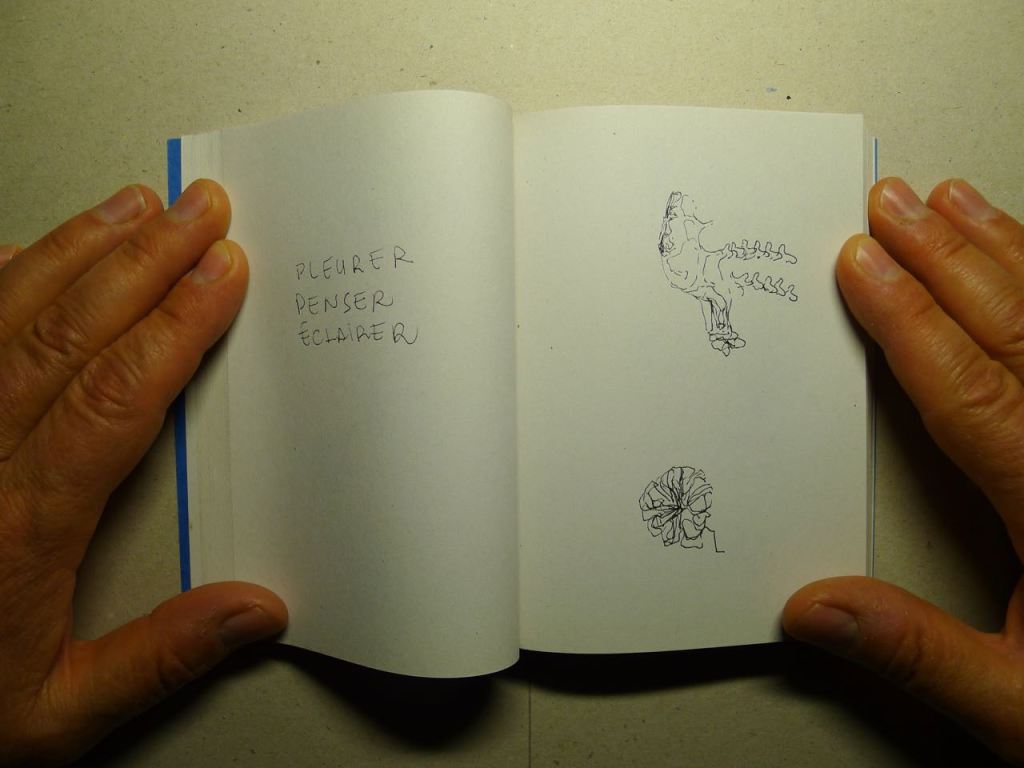 PLEURER
PENSER
ÉCLAIRER